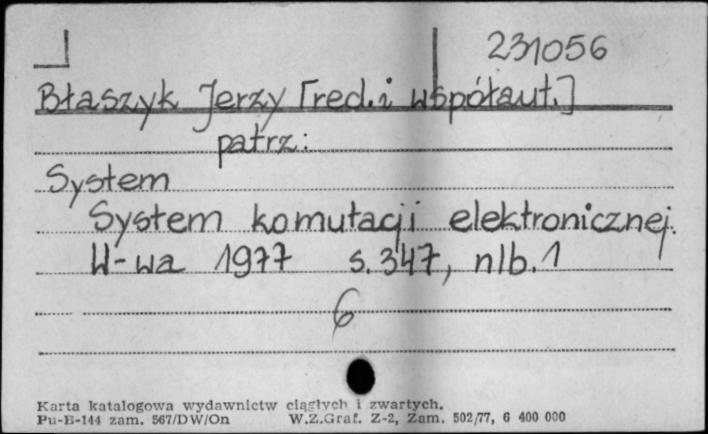 231056
Błaszyk Jerzy [red. i współaut.]
patrz:
System
System komutacji elektronicznej.
W-wa 1977 s. 347, nlb. 1
6
Karta katalogowa wydawnictw ciągłych i zwartych.
Pu-B-144 zam. 567/DW/On W.Z.Graf. Z-2, Zam. 502/77, 6 400 000